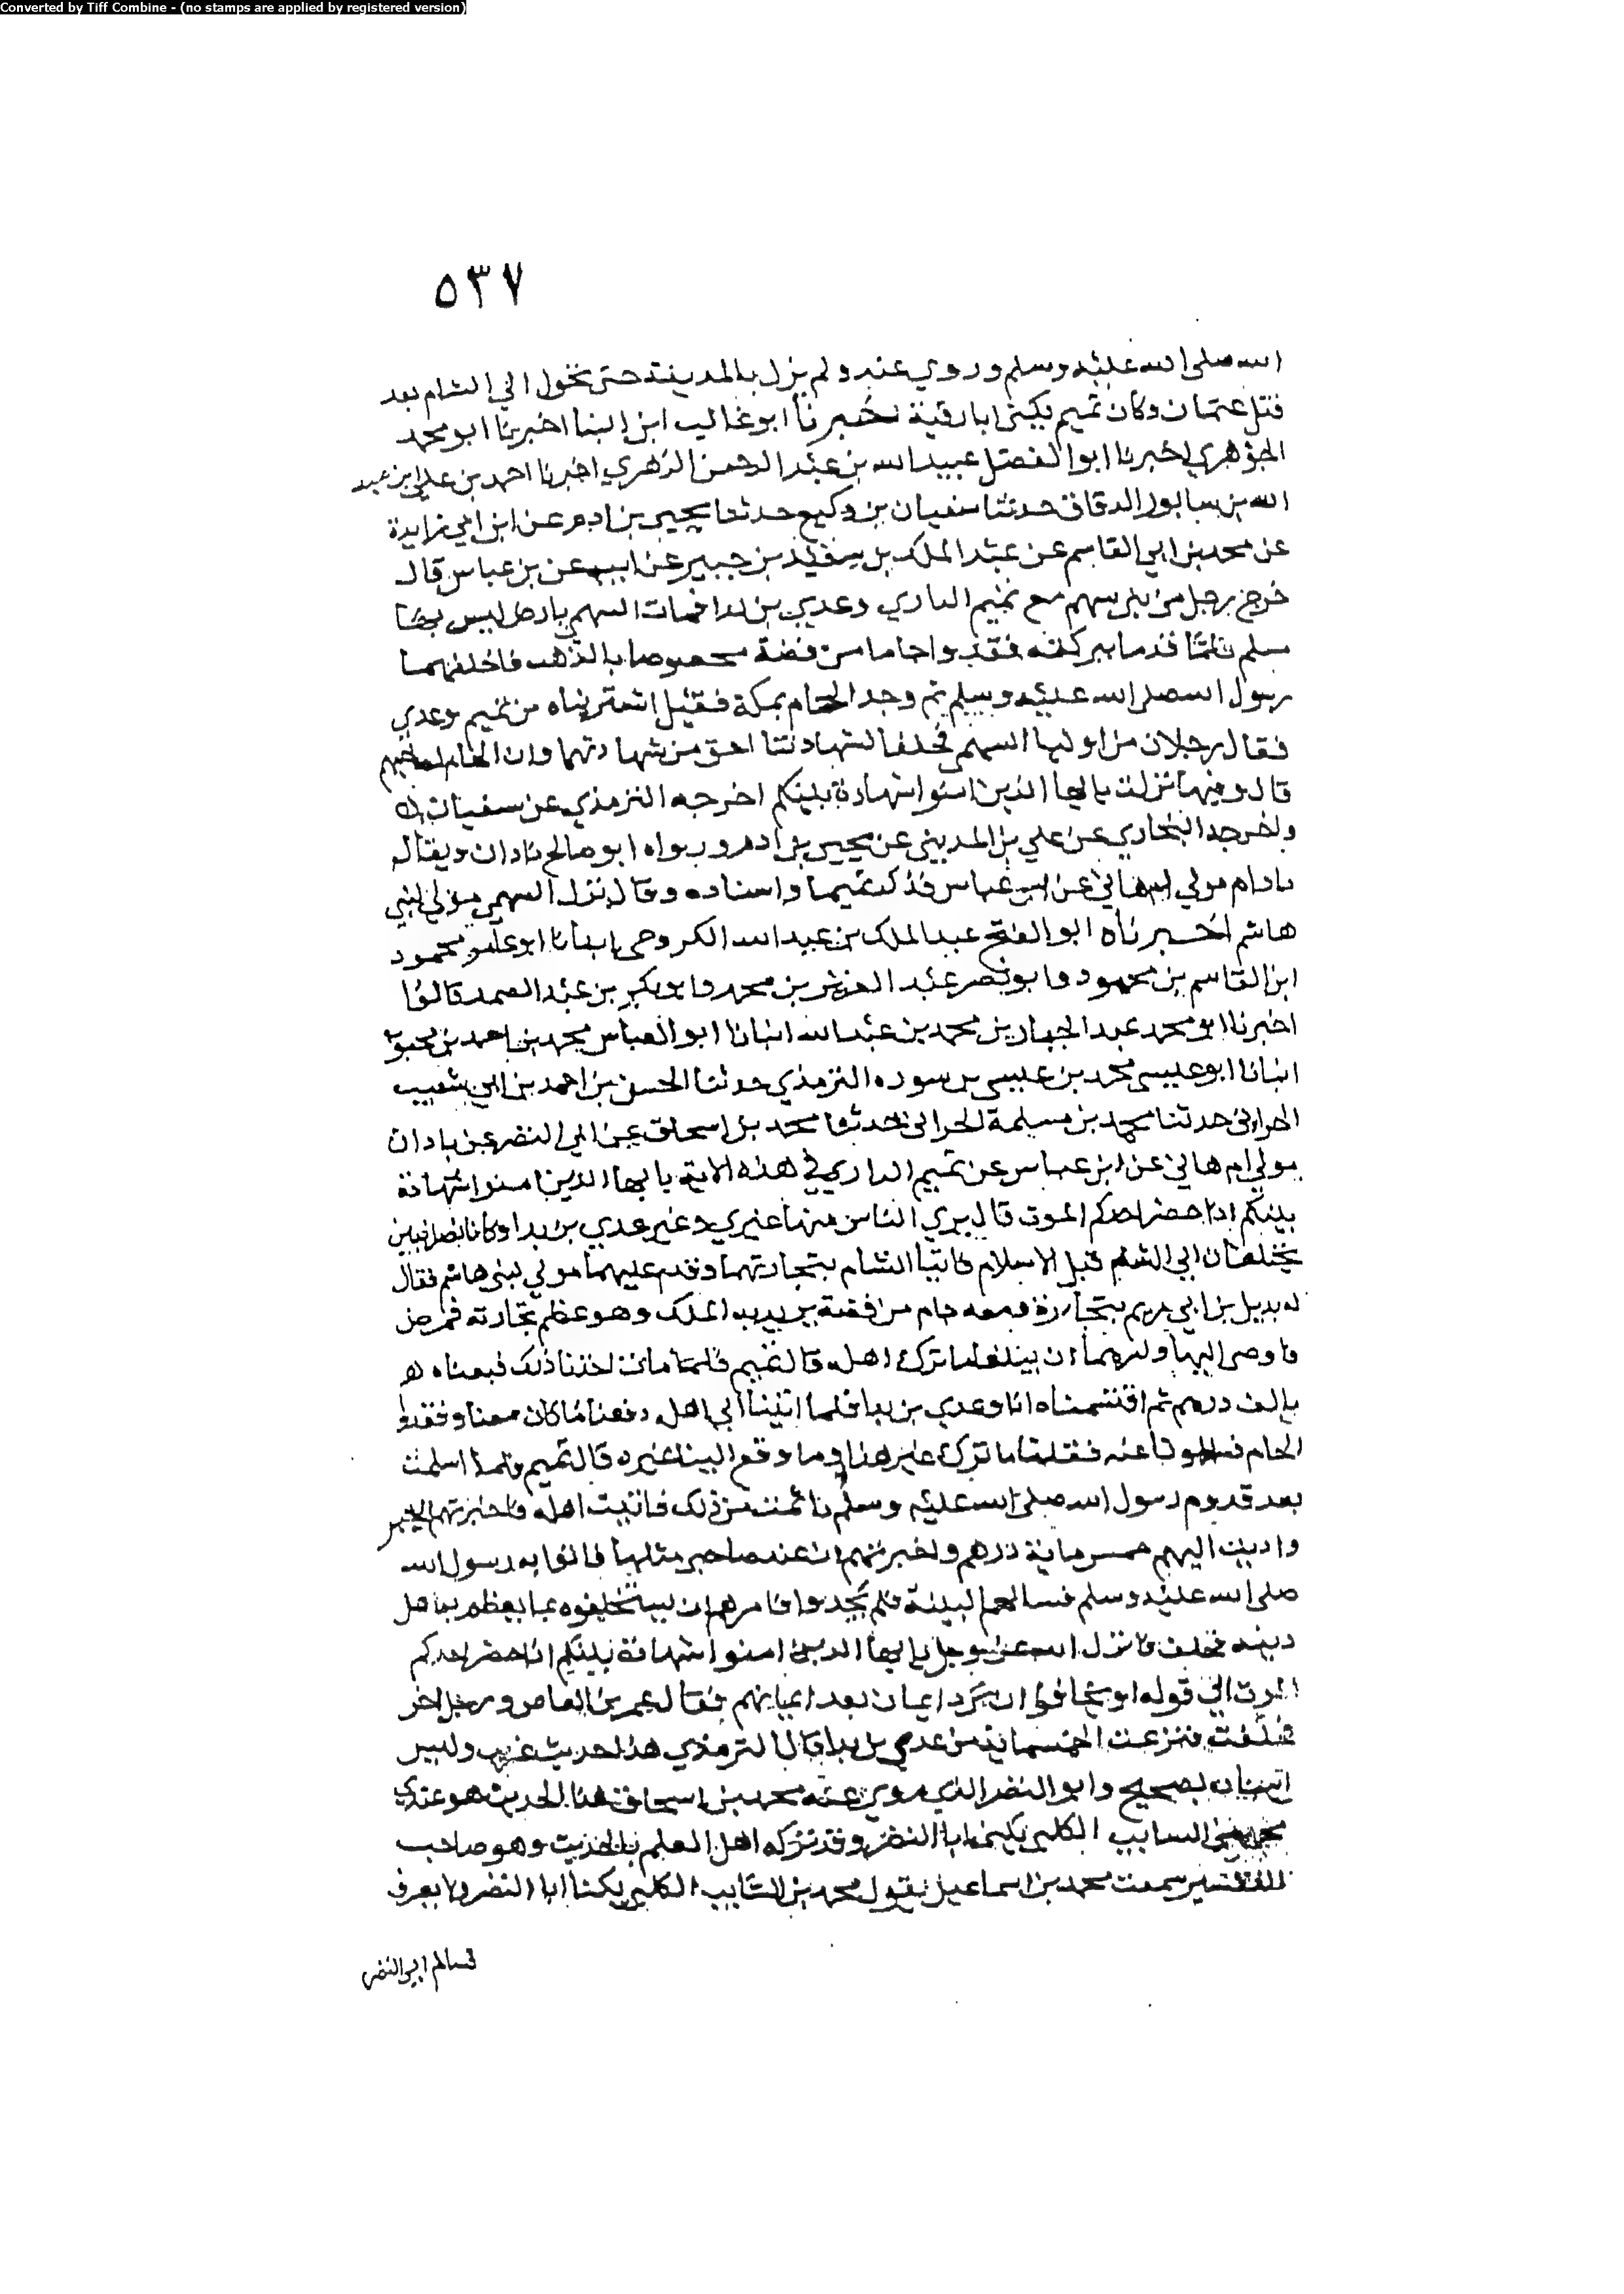 Converted by Tiff Combine - (no stamps are applied by registered version)
٥٣٧
الله صلى الله عليه وسلم وروي عنه ولم يزل بالمدينة حتى تحول الي الشام بعد
قتل عثمان وكان تميم يكنى ابا رقية اخبرنا ابو غالب ابن البنا اخبرنا ابو محمد
الجوهري اخبرنا ابو الفضل عبيد الله بن عبد الرحمن الزهري اخبرنا احمد بن علي بن عبد
الله بن سابور الدقاق حدثنا سفيان بن وكيع حدثنا يحيى بن ادم عن ابن ابي زايدة
عن محمد بن ابي القاسم عن عبد الملك بن سعيد بن جبير عن ابيه عن بن عباس قال
خرج رجل من بني سهم مع تميم الداري وعدي بن بدا فمات السهمي بارض ليس بها
مسلم فلما قدما بتركته فقدوا جاما من فضة مخوصا بالذهب فاحلفهما
رسول الله صلى الله عليه وسلم ثم وجد الجام بمكة فقيل اشتريناه من تميم وعدي
فقال رجلان من اوليا السهمي فحلفا لشهادتنا احق من شهادتهما وان الجام لصاحبهم
قال وفيهم نزلت يايها الذين امنوا شهادة بينكم اخرجه الترمذي عن سفيان
واخرجه البخاري عن علي بن المديني عن يحيى بن ادم ورواه ابو صالح باذان ويقال
باذام مولي ام هاني عن ابن عباس فذكر تميما واسناده وقال نزل السهمي مولى لبني
هاشم اخبرناه ابو الفتح عبد الملك بن عبيد الله الكروخي انبانا ابو عامر محمود
ابن القاسم بن محمود وابو نصر عبد العزيز بن محمد وابو بكر بن عبد الصمد قالوا
اخبرنا ابو محمد عبد الجبار بن محمد بن عبد الله انبانا ابو العباس محمد بن احمد بن محبوب
انبانا ابو عيسى محمد بن عيسى بن سوره الترمذي حدثنا الحسن بن احمد بن ابي شعيب
الحراني حدثنا محمد بن مسلمة الحراني حدثنا محمد بن اسحاق عن ابي النضر عن باذان
مولي ام هاني عن ابن عباس عن تميم الداري في هذه الاية يايها الذين امنوا شهادة
بينكم اذا حضر احدكم الموت قال بري الناس منها غيري وغير عدي بن بدا وكانا نصرانيين
يختلفان الي الشام قبل الاسلام فاتيا الشام بتجارتهما وقدم عليهما مولي لبني هاشم فقال
له بديل بن ابي مريم بتجارة ومعه جام من فضة يريد به الملك وهو عظم تجارته فمرض
فاوصى اليهما وامرهما ان يبلغا ما ترك اهله قال تميم فلما مات اخذنا ذلك فبعناه
بالف درهم ثم اقتسمناه انا وعدي بن بدا فلما اتينا الي اهله دفعنا ما كان معنا وفقدوا
الجام فسالونا عنه فقلنا ما ترك غير هذا وما دفع الينا غيره قال تميم فلما اسلمت
بعد قدوم رسول الله صلى الله عليه وسلم تاثمت من ذلك فاتيت اهله فاخبرتهم الخبر
واديت اليهم خمس ماية درهم واخبرتهم ان عند صاحبي مثلها فاتوا به رسول الله
صلى الله عليه وسلم فسالهم البينة فلم يجدوا فامرهم ان يستحلفوه بما يعظم به اهل
دينه فحلف فانزل الله عز وجل يايها الذين امنوا شهادة بينكم اذا حضر احدكم
الموت الي قوله او يخافوا ان ترد ايمان بعد ايمانهم فقام عمر بن العاص ورجل اخر
فحلفا فنزعت الخمسماية من عدي بن بدا قال الترمذي هذا حديث غريب وليس
اسناده بصحيح وابو النضر الذي روى عنه محمد بن اسحاق هذا الحديث هو عندي
محمد بن السايب الكلبي يكنى ابا النضر وقد تركه اهل العلم بالحديث وهو صاحب
التفسير سمعت محمد بن اسماعيل يقول محمد بن السايب الكلبي يكنا ابا النضر ولا يعرف
لسالم ابي النضر